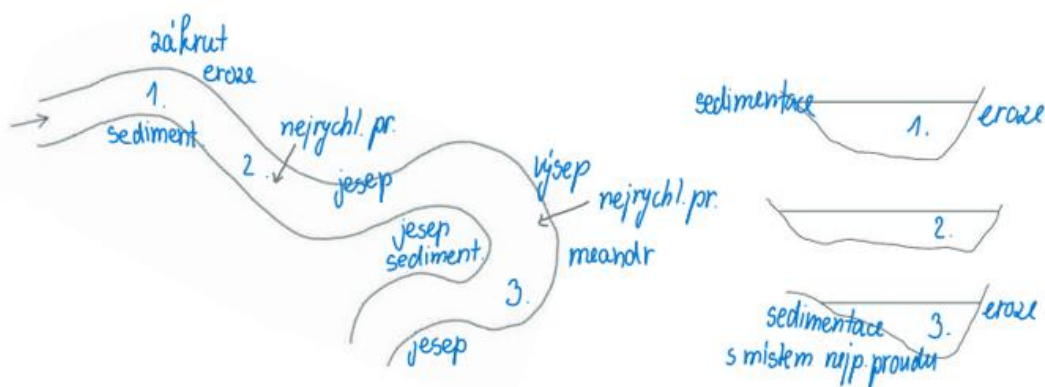 zákrut
eroze
1.
sediment.
nejrychl. pr.
2.
jesep
výsep
nejrychl. pr.
jesep
sediment.
meandr
3.
jesep
sedimentace
1.
eroze
2.
sedimentace
3.
eroze
s místem nejp. proudu